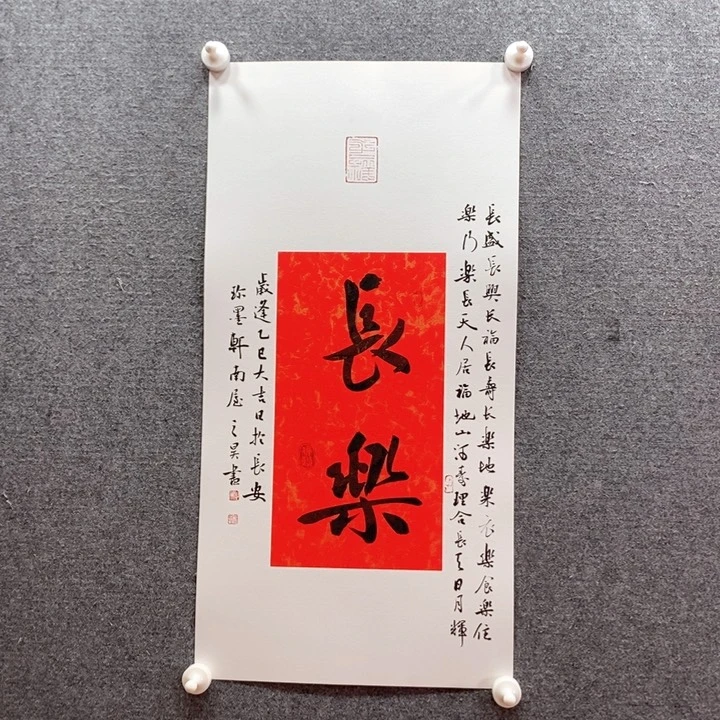 長樂
長盛長興長福長壽長樂地樂衣樂食樂住
樂行樂長天人居福地山河壽理合長天日月輝
歲逢乙巳大吉日於長安
珍墨軒南屋之昊書